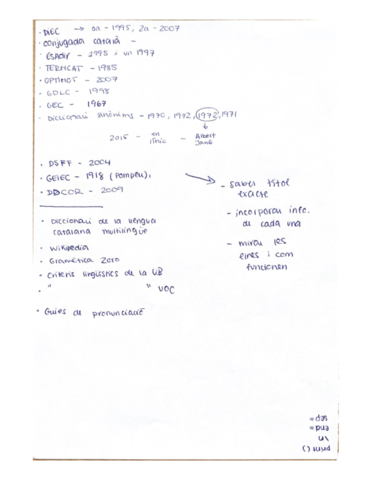 · DIEC → 1a - 1995, 2a - 2007
· Conjugador català -
· ésAdir - 1995 i un 1997
· TERMCAT - 1985
· OPTIMOT - 2007
· GDLC - 1998
· GEC - 1967
· Diccionari sinònims - 1970, 1972, 1972, 1971
2015 - en línia - Albert Jané
· DSFF - 2004
· GEIEC - 1918 (Pompeu).
· DDCOR - 2009
- saber títol exacte
- incorporar info. de cada una
- mirar les eines i com funcionen
· Diccionari de la llengua catalana multilingüe
· Wikipedia
· Gramàtica Zero
· Criteris lingüístics de la UB
· " " UOC
· Guies de pronunciació